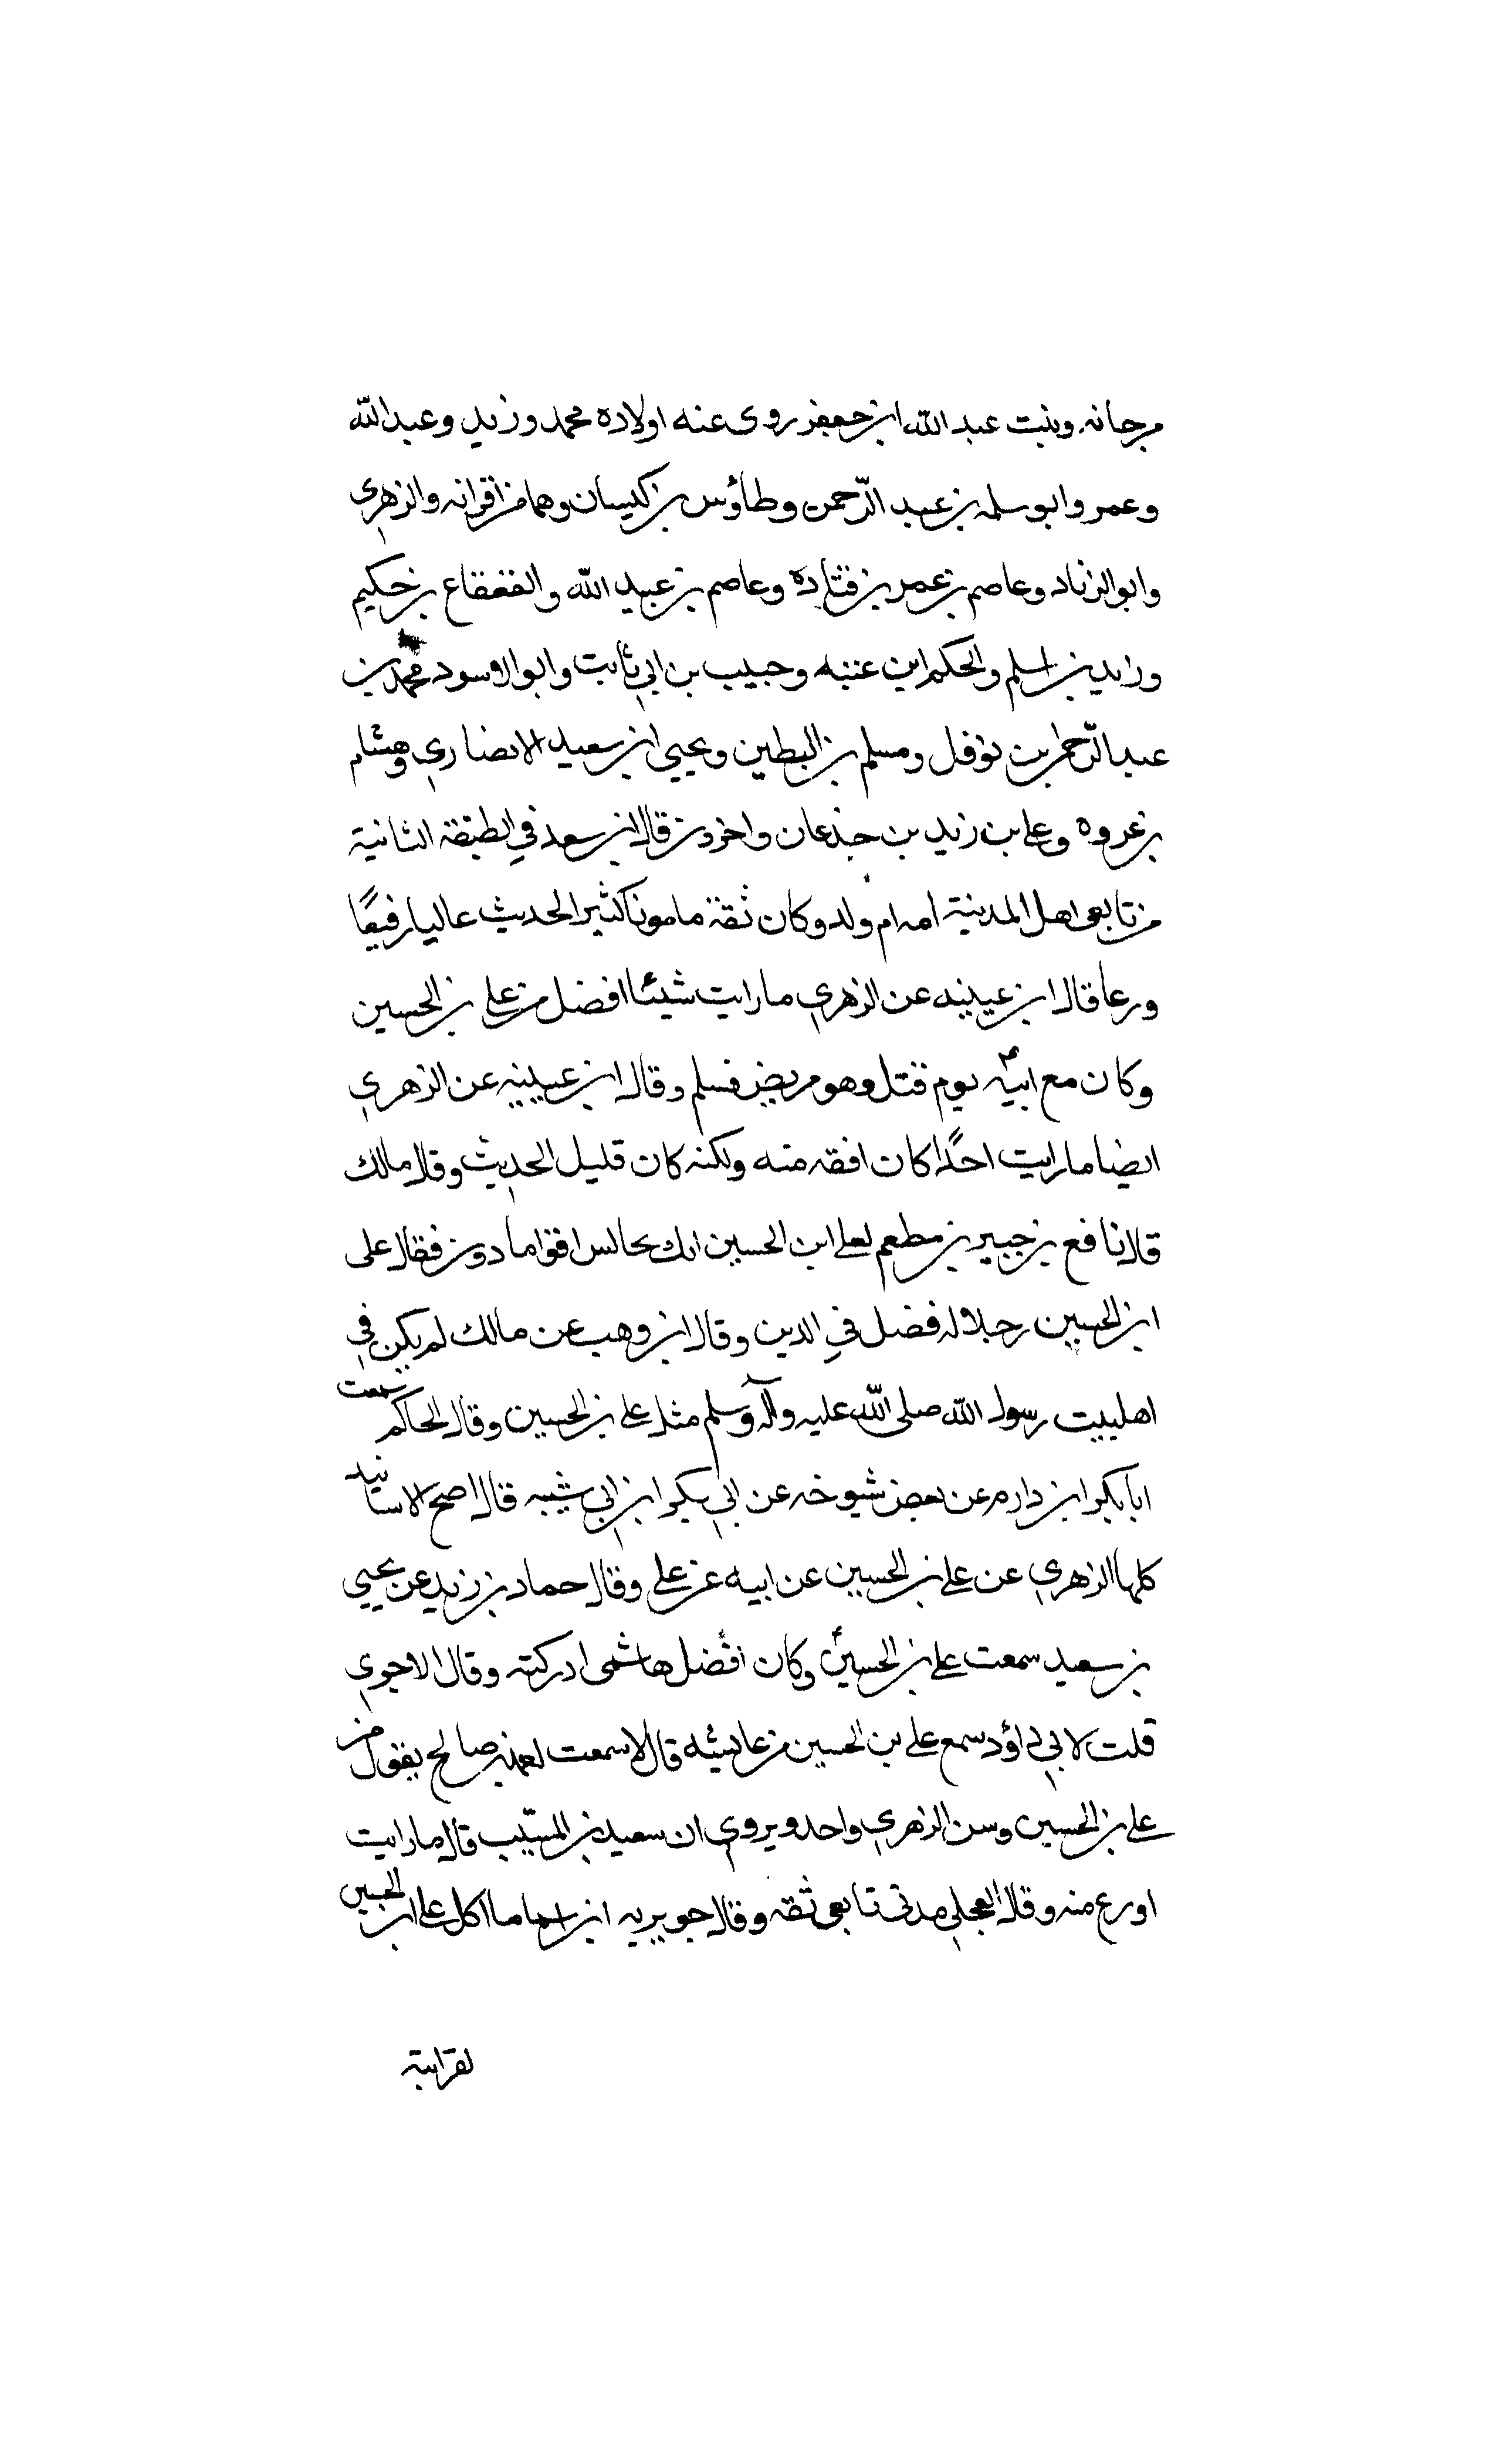 مرجانه وبنت عبد الله ابن جعفر روى عنه اولاده محمد وزيد وعبد الله
وعمر وابو سلمه بن عبد الرّحمن وطاؤس بن كيسان وهما من اقرانه والزهري
وابو الزناد وعاصم بن عمر بن قتاده وعاصم بن عبيد الله والقعقاع بن حكيم
وزايد بن اسلم والحكم ابن عتبه وحبيب بن ابي ثابت وابو الاسود محمد بن
عبد الرّحمن بن نوفل ومسلم بن البطين ويحيى ابن سعيد الانصاري وهشام
بن عروه وعلى بن زيد بن جذعان واخرون قال ابن سعد في الطبقة الثانية
من تابعى اهل المدينة امه ام ولد وكان ثقة مامونا كثير الحديث عاليا رفيعًا
ورعا قال ابن عيينه عن الزهري ما رايت شيئا افضل من على بن الحسين
وكان مع ابيه يوم قتل وهو مريض فسلم وقال ابن عيينه عن الزهري
ايضا ما رايت احدًا كان افقه منه ولكنه كان قليل الحديث وقال مالك
قال نافع بن جبير بن مطعم لعلى ابن الحسين انك تجالس اقواما دون فقال على
ابن الحسين رجلا له فضل في الدين وقال ابن وهب عن مالك لم يكن في
اهلبيت رسول الله صلى الله عليه وآله وسلم مثل على بن الحسين وقال الحاكم سمعت
ابا بكر ابن دارم عن بعض شيوخه عن ابي بكر ابن ابي شيبه قال اصح الاسانيد
كلها الزهري عن على بن الحسين عن ابيه عن على وقال حماد بن زيد عن يحيى
بن سعيد سمعت على بن الحسين وكان افضل هاشمى ادركته وقال الاجري
قلت لابي داؤد سمع على بن الحسين من عايشه قال لا سمعت احمد بن صالح يقول من
على بن الحسين وسن الزهري واحد ويروي ان سعيد بن المسيّب قال ما رايت
اورع منه وقال العجلي مدنى تابعى ثقه وقال جويريه ابن اسما ما اكل على ابن الحسين
لقرابته